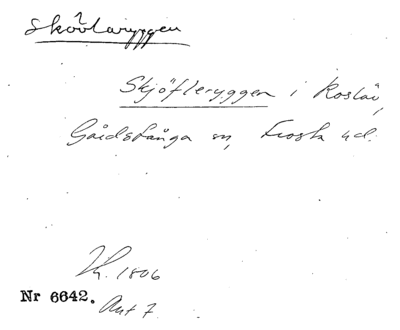 Skövlaryggen
Skjöfleryggen i Roslöv,
Gårdstånga sn, Frosta hd.
1806
Nr 6642. Akt 7